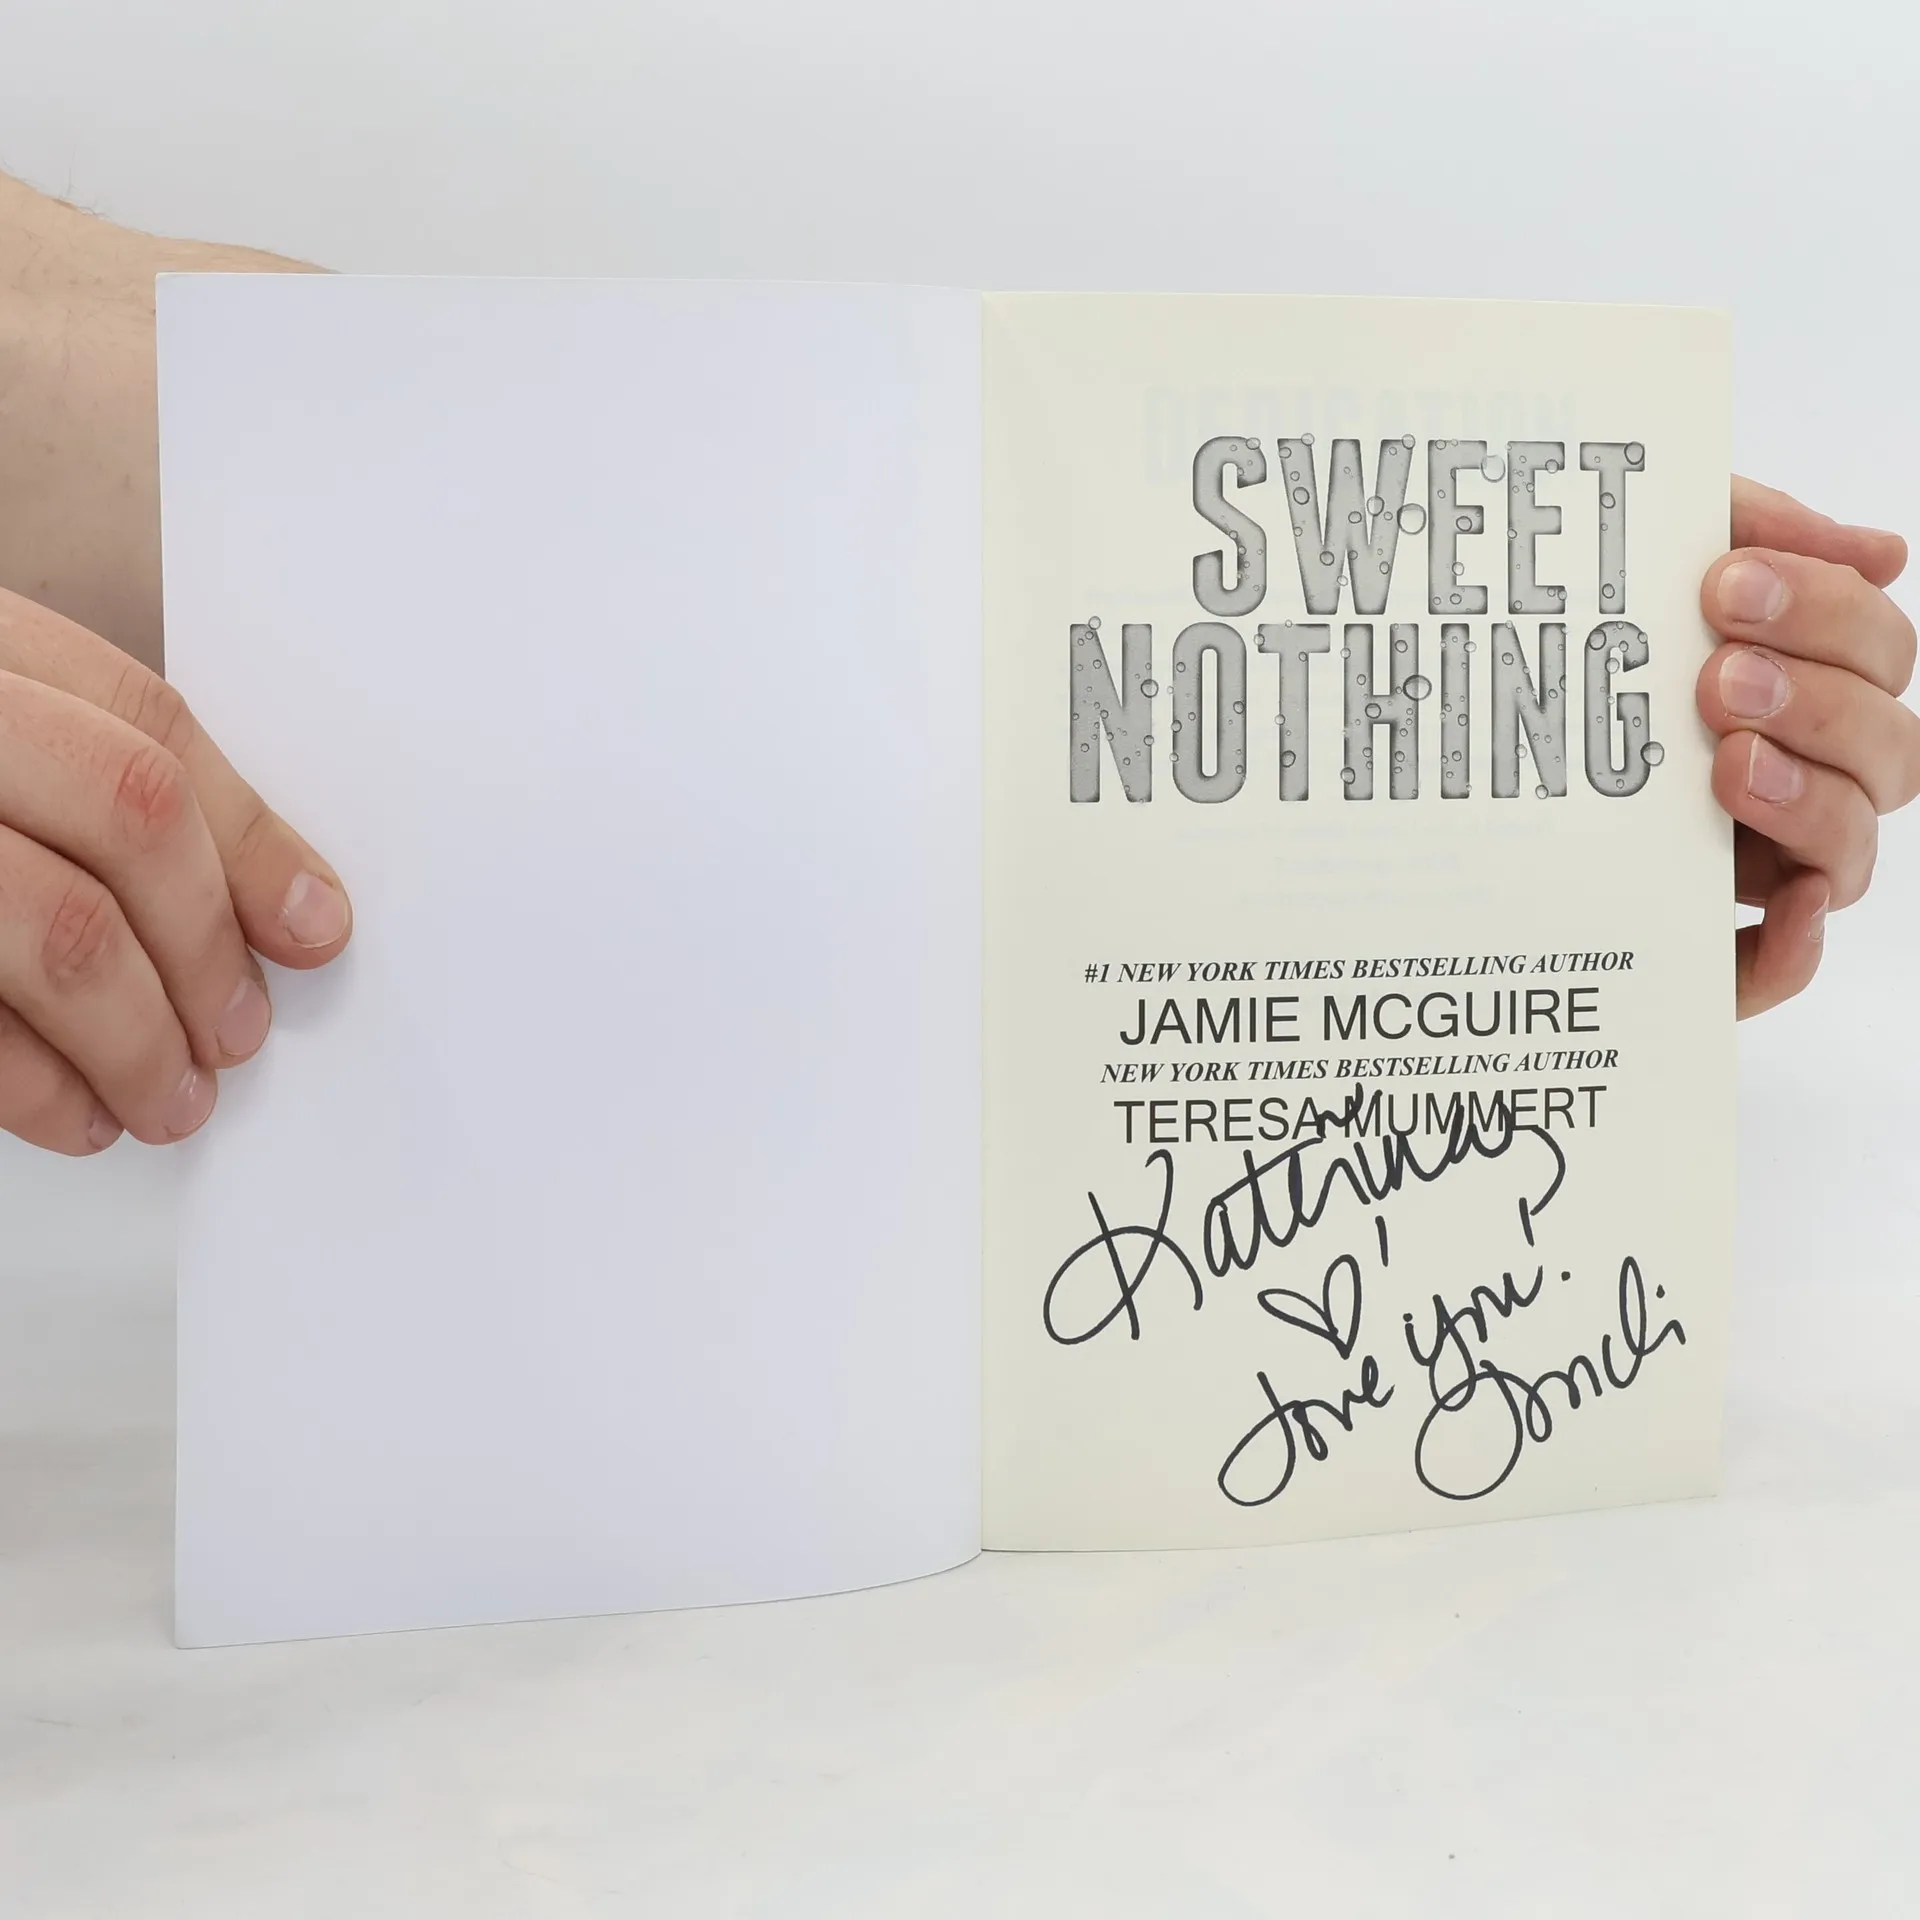 SWEET
NOTHING
#1 NEW YORK TIMES BESTSELLING AUTHOR
JAMIE MCGUIRE
NEW YORK TIMES BESTSELLING AUTHOR
TERESA MUMMERT
Love you!